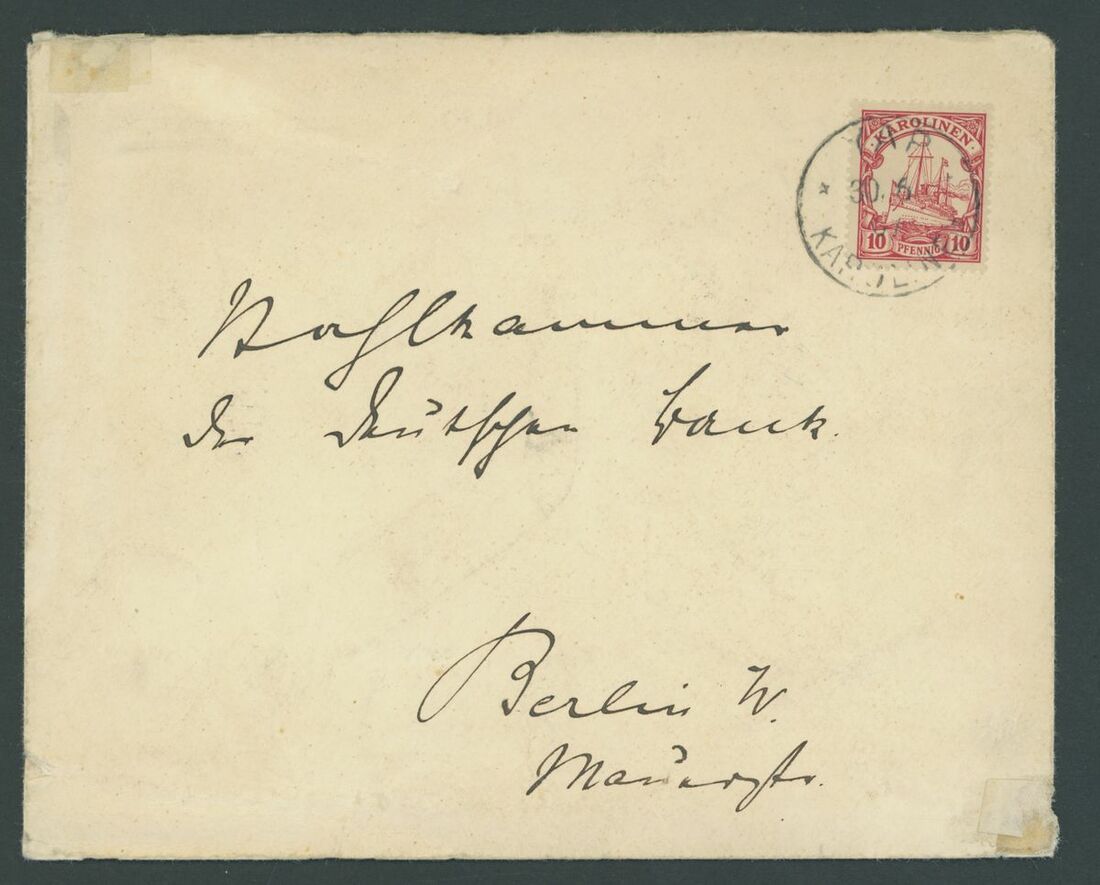 KAROLINEN
10 PFENNIG 10
30. 5
Stahlkammer
der Deutschen Bank.
Berlin W.
Mauerstr.